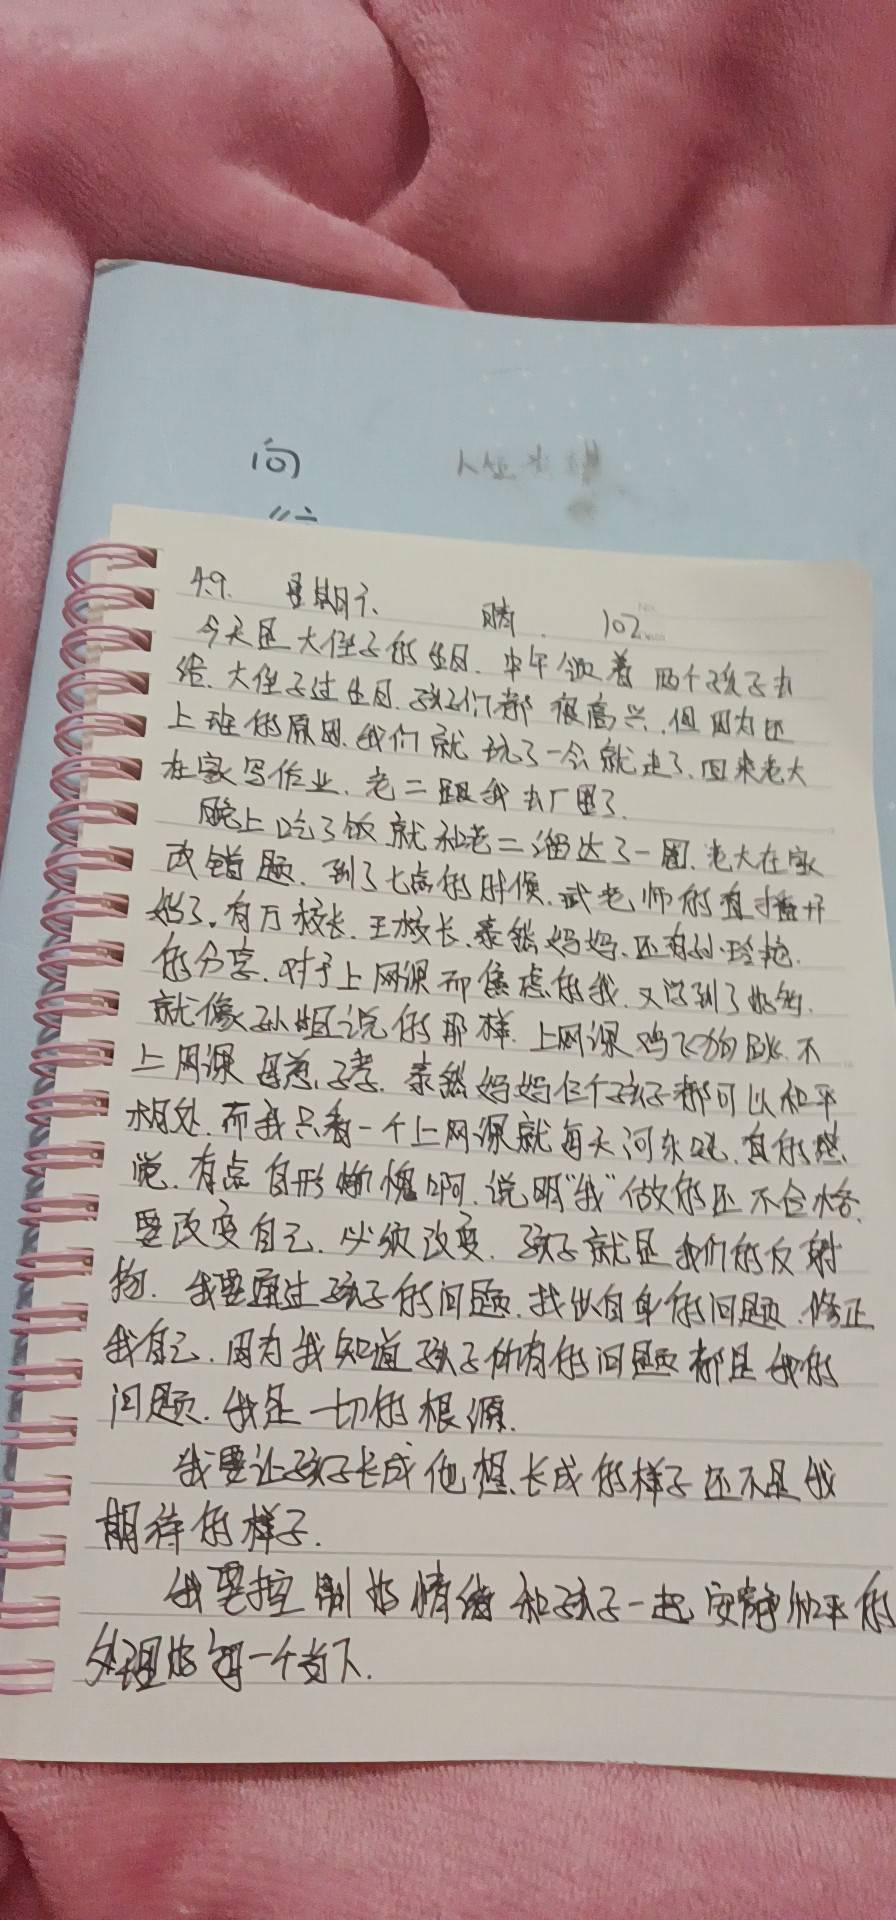 问
4.9. 星期六、 晴. 102
今天是大侄子的生日.中午领着两个孩子去
给.大侄子过生日.孩子们都很高兴.但因为还
上班的原因.我们就玩了一会就走了.回来老大
在家写作业.老二跟我去厂里了.
晚上吃了饭就和老二溜达了一圈.老大在家
改错题.到了七点的时候.武老师的直播开
始了.有万校长.王校长.泰然妈妈.还有孙玲艳.
的分享.对于上网课而焦虑的我.又学到了好多.
就像孙姐说的那样.上网课鸡飞狗跳.不
上网课母慈.子孝.泰然妈妈仨个孩子都可以和平
相处.而我只看一个上网课就每天河东吼.真的感
觉.有点自形惭愧啊.说明"我"做的还不合格.
要改变自己.必须改变.孩子就是我们的反射
物.我要通过孩子的问题.找出自身的问题.修正
我自己.因为我知道孩子所有的问题都是我的
问题.我是一切的根源.
我要让孩子长成他想.长成的样子还不是我
期待的样子.
我要控制好情绪和孩子一起安静和平的
处理好每一个当下.